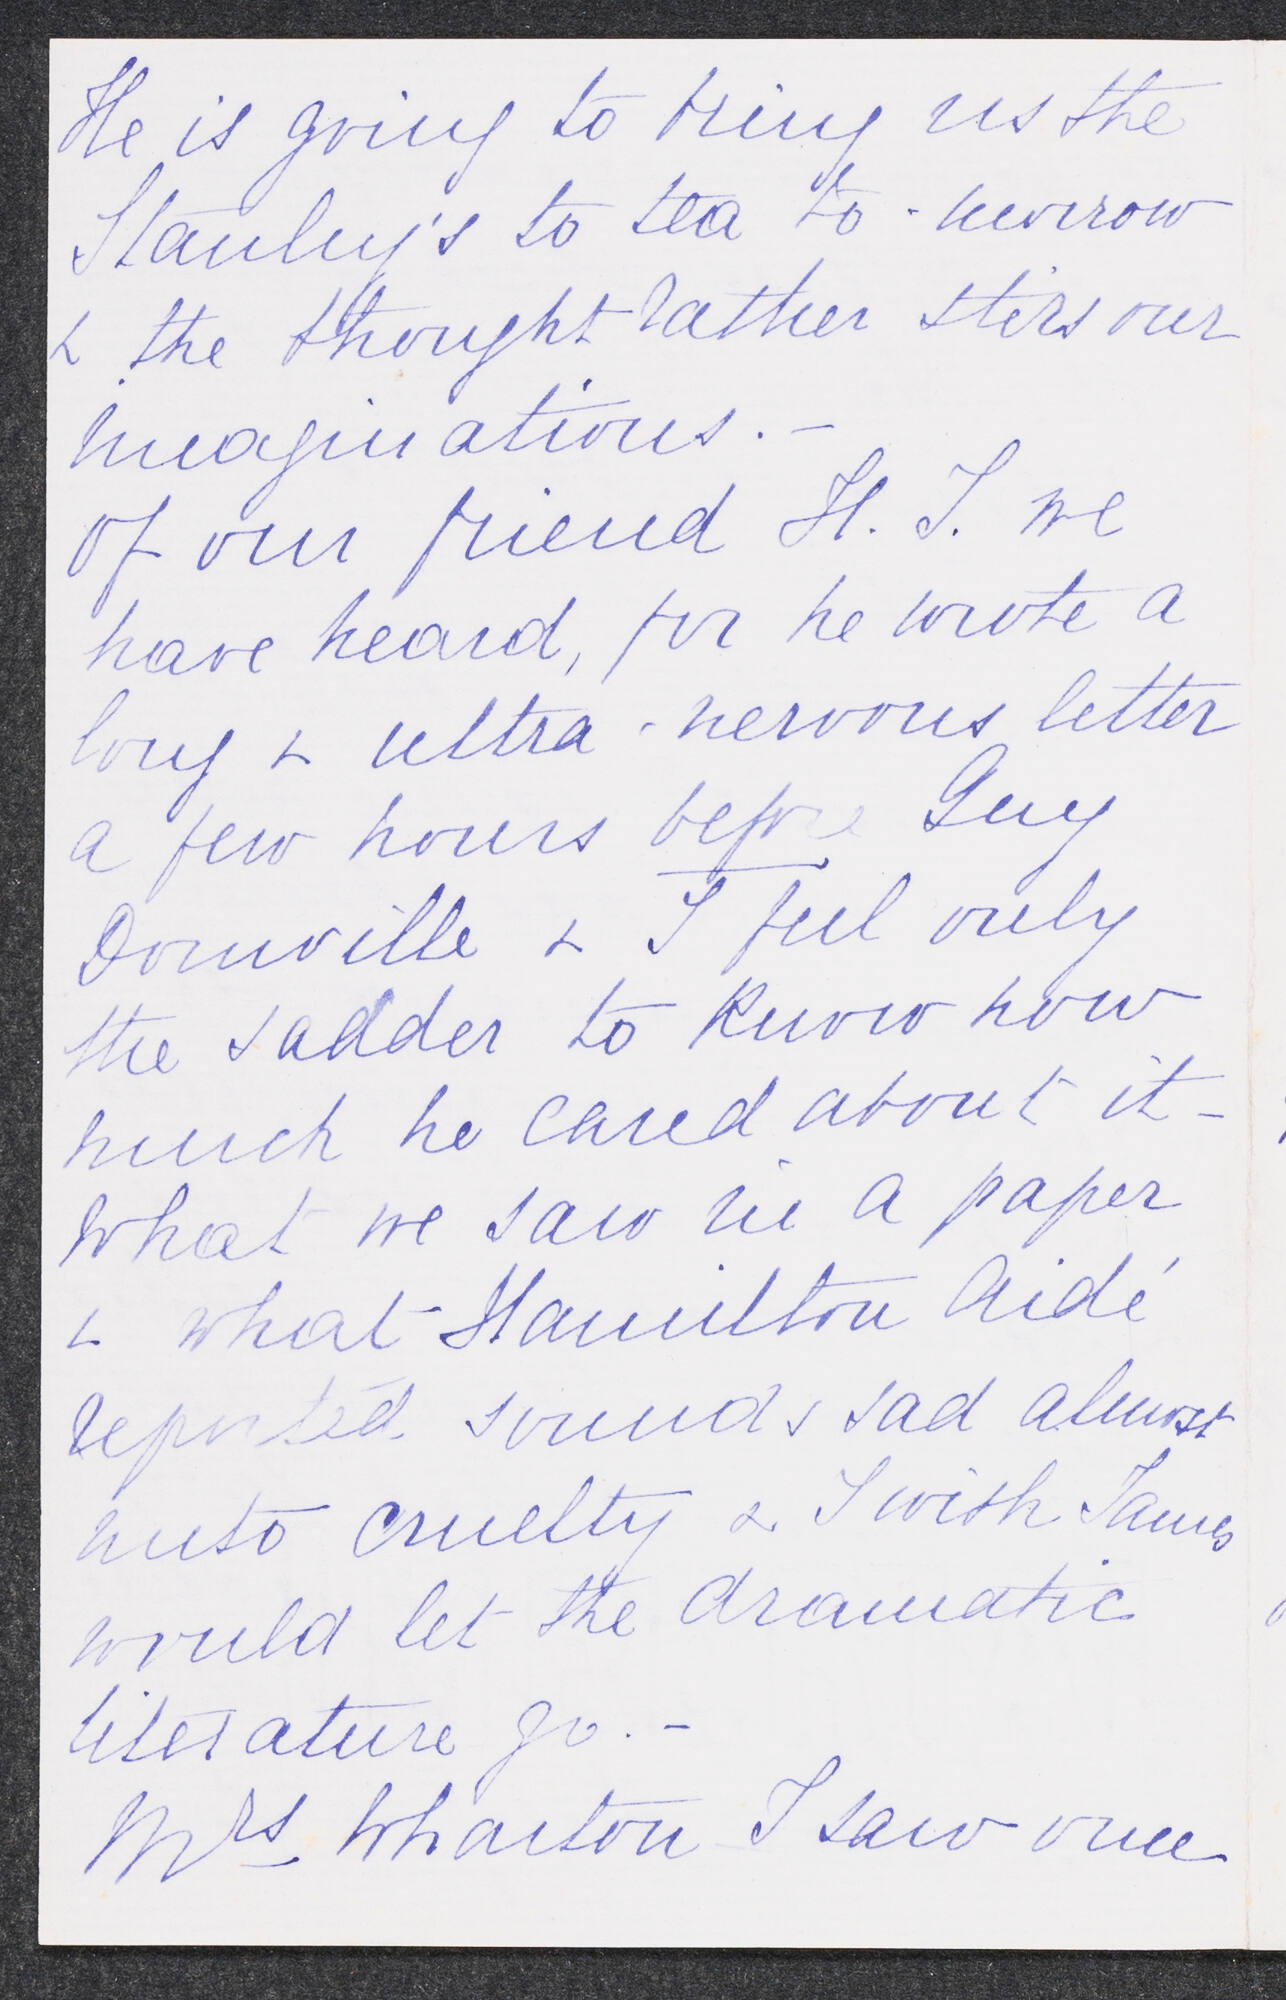 He is going to bring us the
Stanley's to tea to-morrow
& the thought rather stirs our
imaginations. -
Of our friend H. J. we
have heard, for he wrote a
long & ultra-nervous letter
a few hours before Guy
Domville & I feel only
the sadder to know how
much he cared about it -
What we saw in a paper
& what Hamilton Aidé
reported sounds sad almost
unto cruelty & I wish James
would let the dramatic
literature go. -
Mrs Wharton I saw once